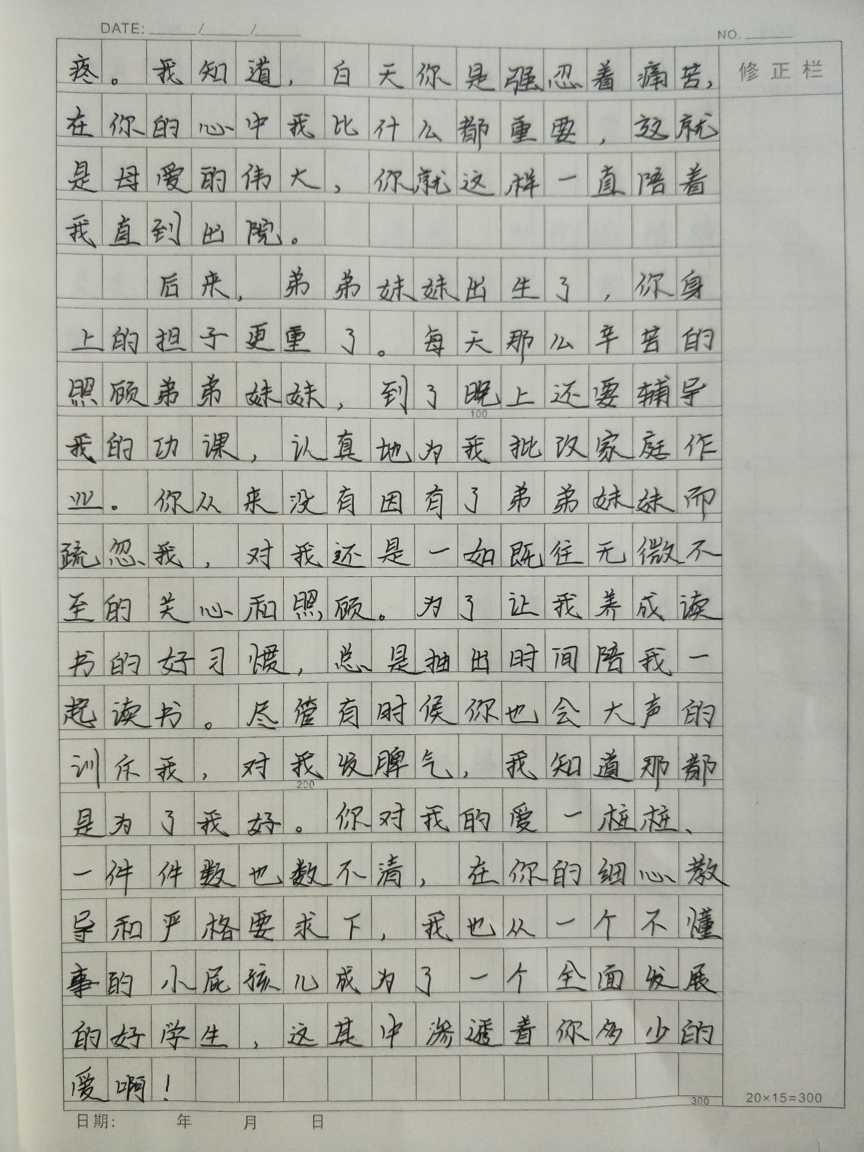 DATE: ____/____/____
NO. ____
修正栏
疼。我知道，白天你是强忍着痛苦，
在你的心中我比什么都重要，这就
是母爱的伟大，你就这样一直陪着
我直到出院。
后来，弟弟妹妹出生了，你身
上的担子更重了。每天那么辛苦的
照顾弟弟妹妹，到了晚上还要辅导
100
我的功课，认真地为我批改家庭作
业。你从来没有因有了弟弟妹妹而
疏忽我，对我还是一如既往无微不
至的关心和照顾。为了让我养成读
书的好习惯，总是抽出时间陪我一
起读书。尽管有时侯你也会大声的
训斥我，对我发脾气，我知道那都
200
是为了我好。你对我的爱一桩桩、
一件件数也数不清，在你的细心教
导和严格要求下，我也从一个不懂
事的小屁孩儿成为了一个全面发展
的好学生，这其中渗透着你多少的
爱啊！
300
20×15=300
日期： 年 月 日